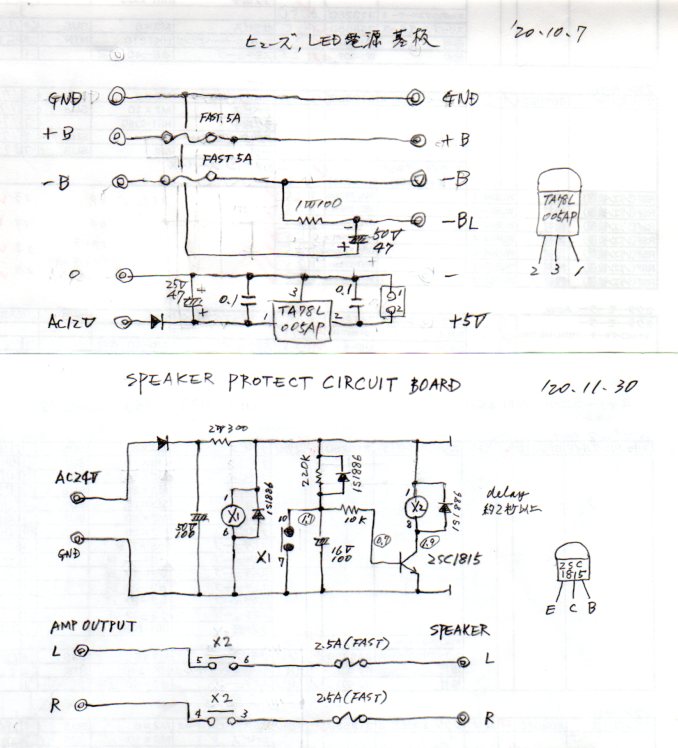 ヒューズ, LED電源基板
'20.10.7
GND
GND
FAST. 5A
+B
+B
FAST 5A
-B
-B
1W100
-BL
-
+
50V
47
TA78L
005AP
2 3 1
0
-
25V
47
+
+
0.1
3
0.1
1
2
AC12V
1
TA78L
005AP
2
+5V
SPEAKER PROTECT CIRCUIT BOARD
'20.11.30
2W300
AC24V
GND
50V
100
1
X1
6
1S1886
220K
1S1886
10
X1
7
10K
16V
100
0.7
1
X2
8
1S1886
2SC1815
delay
2SC
1815
E C B
AMP OUTPUT
SPEAKER
L
5
X2
6
2.5A (FAST)
L
R
4
X2
3
2.5A (FAST)
R